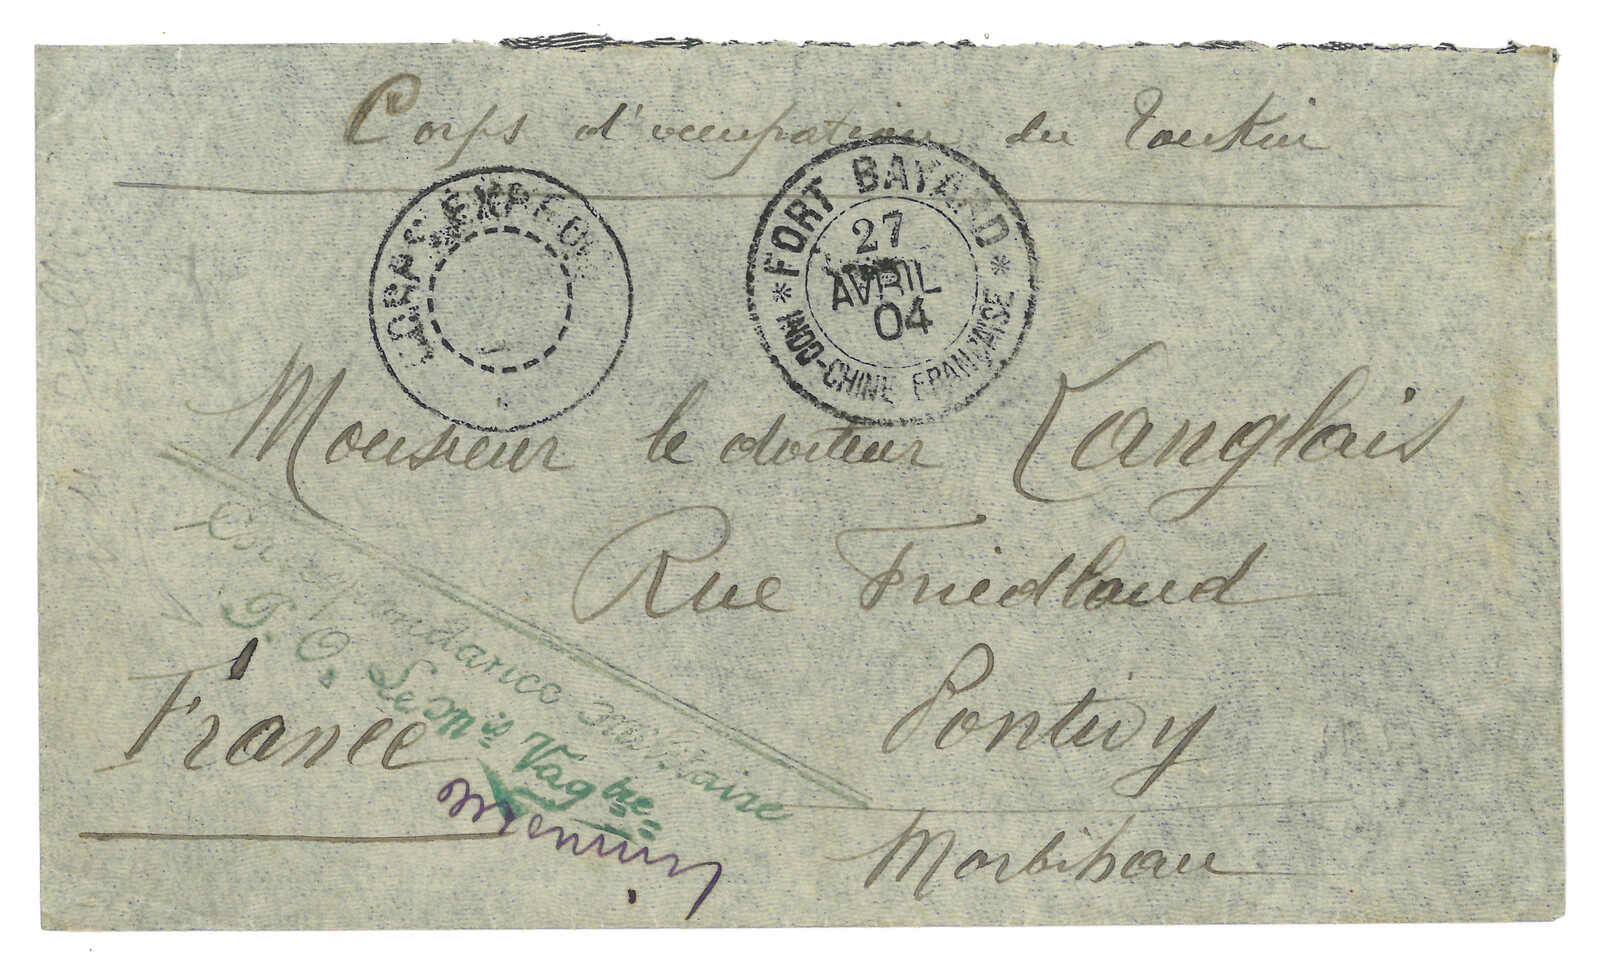 Corps d'occupation du Tonkin
CORPS EXPEDI
* FORT BAYARD *
27
AVRIL
04
INDO-CHINE FRANÇAISE
Monsieur le docteur Langlais
Rue Friedland
Pontivy
Morbihan
France
Correspondance militaire
P. O. Le Mis Vagtre